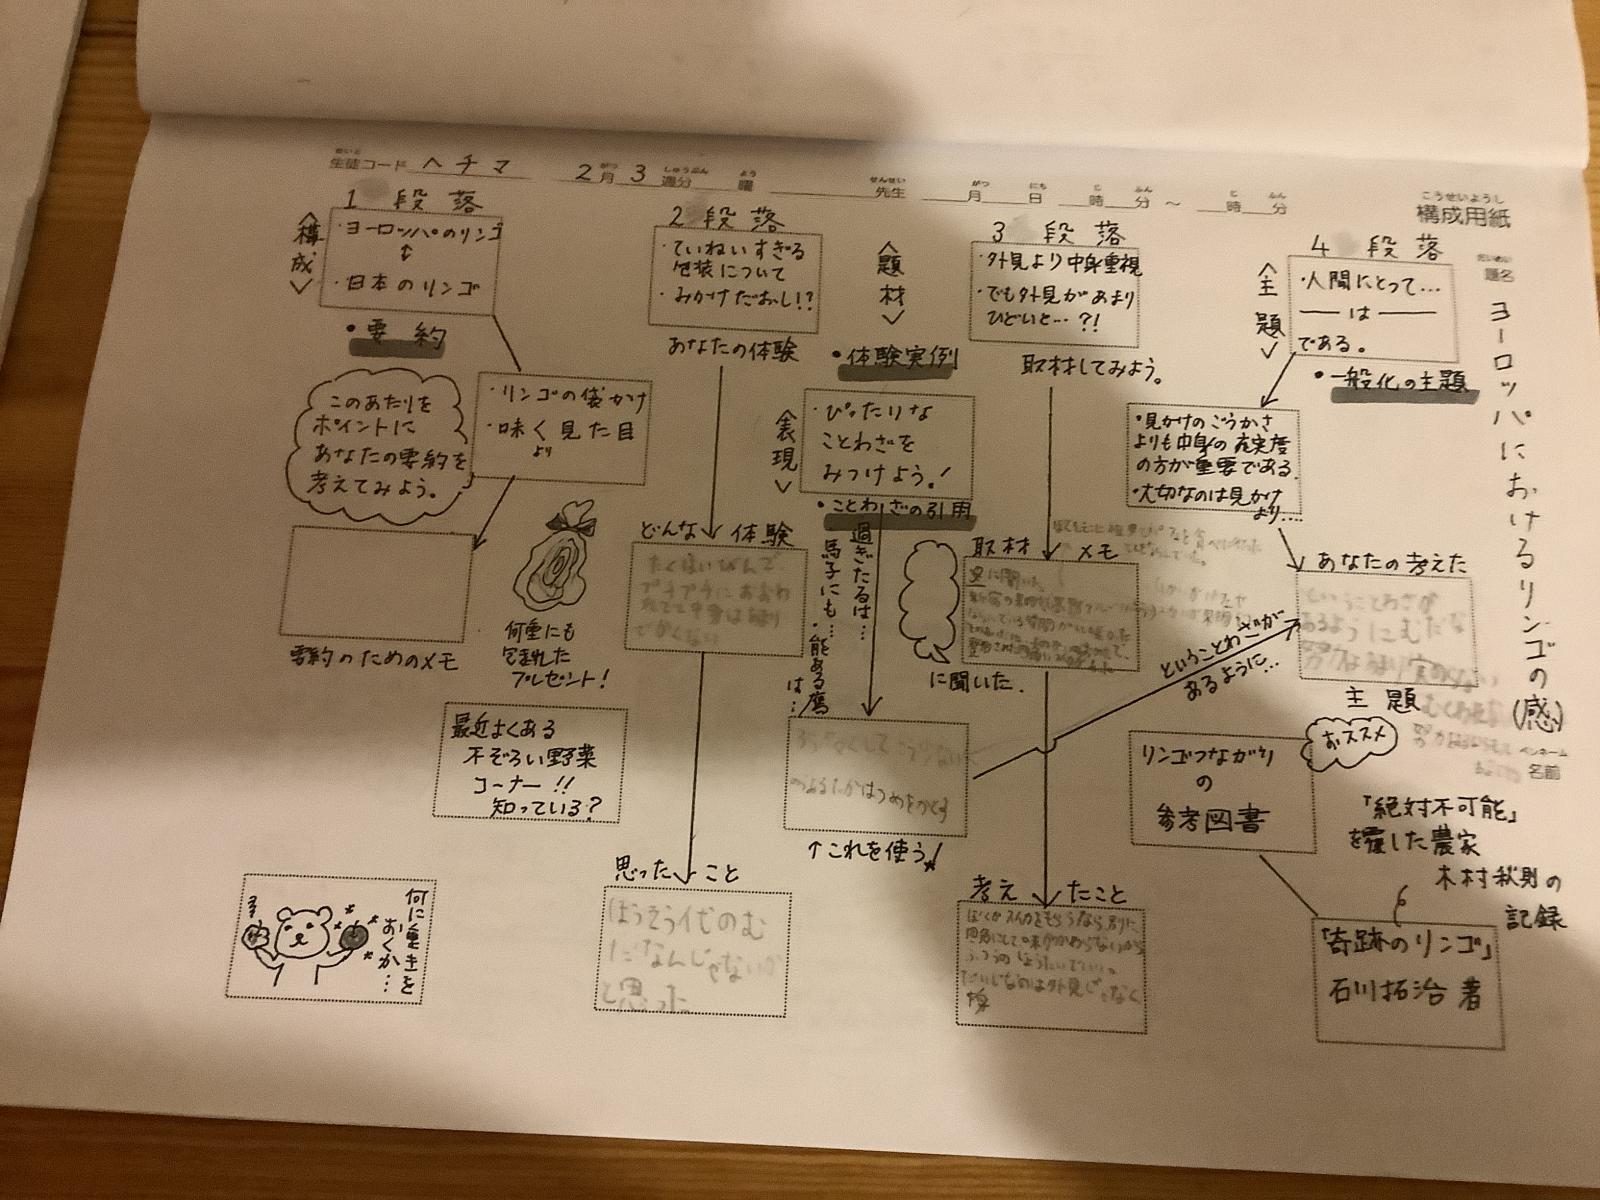 生徒コード ヘチマ 2月3週分 曜 先生 月 日 時 分 ～ 時 分
構成用紙
題名 ヨーロッパにおけるリンゴの(感)
ペンネーム
名前
1 段落
<構成>
・ヨーロッパのリンゴ
↕
・日本のリンゴ
・要約
このあたりを
ポイントに
あなたの要約を
考えてみよう。
・リンゴの袋かけ
・味く見た目
より
要約のためのメモ
何重にも
包まれた
プレゼント!
最近よくある
不ぞろい野菜
コーナー!!
知っている?
何に重きを
おくか…
2 段落
・ていねいすぎる
包装について
・みかけだおし!?
あなたの体験
どんな体験
たくはいびんで
プチプチにおおわ
れてて中身はあまり
でかくない
思ったこと
ほうそう代のむ
だなんじゃないか
と思った
<題材>
・体験実例
<表現>
・ぴったりな
ことわざを
みつけよう!
・ことわざの引用
過ぎたるは…
馬子にも…
・能ある鷹
は…
のあるたかはつめをかくす
↑これを使う!
3 段落
・外見より中身重視
・でも外見があまり
ひどいと…?!
取材してみよう。
取材メモ
に聞いた。
考えたこと
だいじなのは外見じゃなく
4 段落
<主題>
・人間にとって…
― は ―
である。
・一般化の主題
・見かけのごうかさ
よりも中身の充実度
の方が重要である。
・大切なのは見かけ
より…
ということわざが
あるように…
あなたの考えた
ということわざが
あるようにむだな
努力はあまり実の
主題
おススメ
リンゴつながり
の
参考図書
「絶対不可能」
を覆した農家
木村秋則の
記録
「奇跡のリンゴ」
石川拓治 著